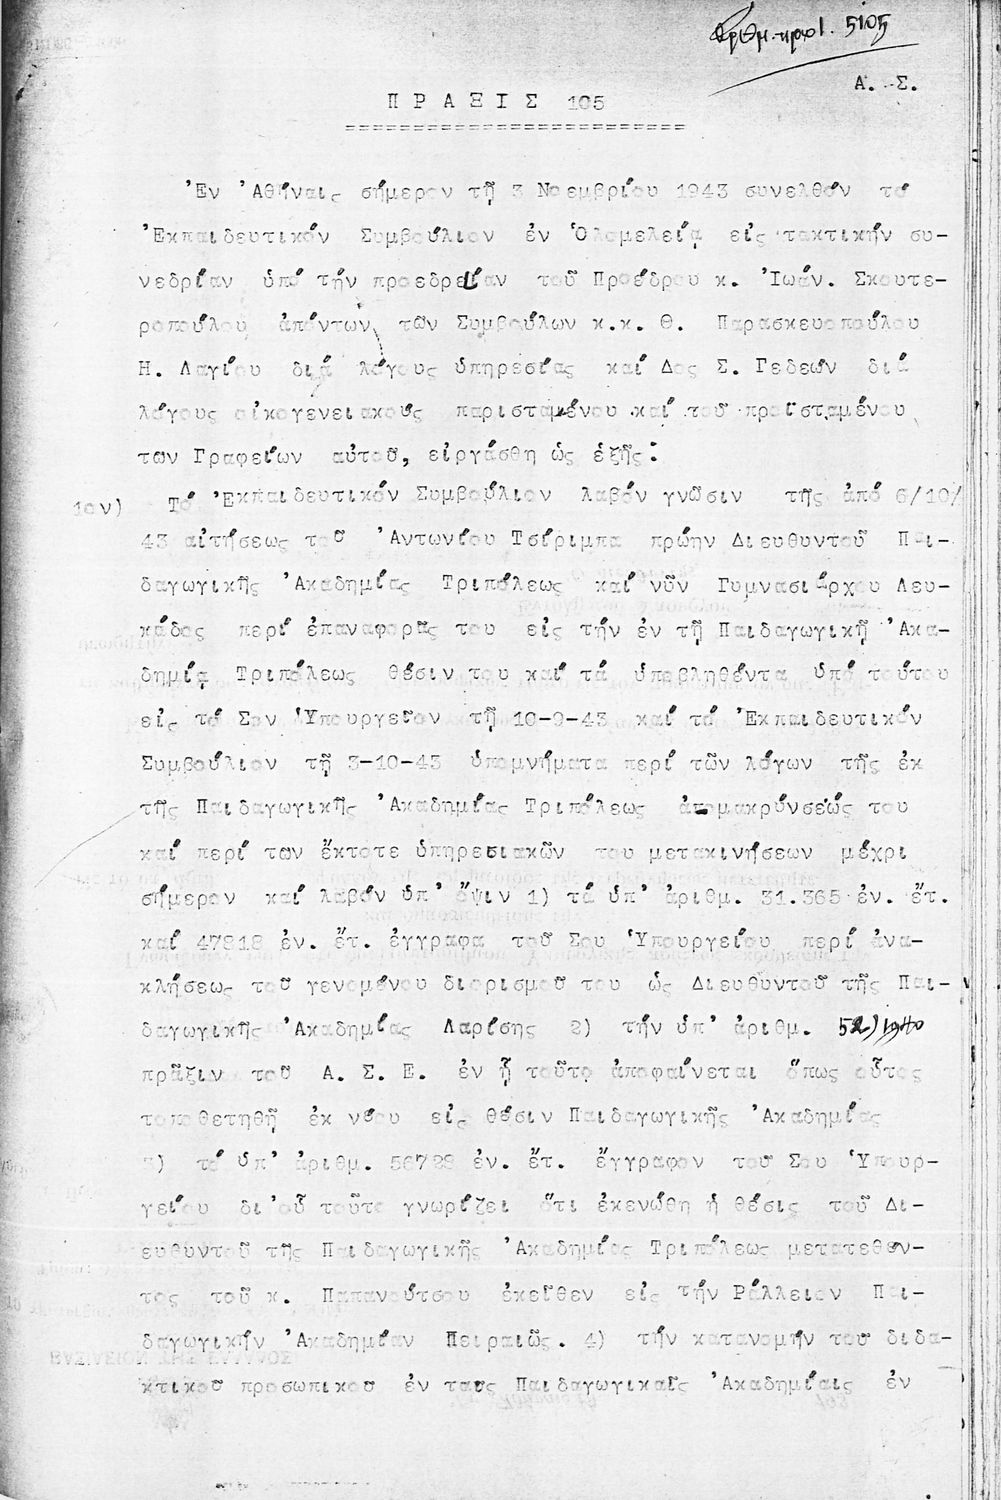 Ἀριθμ. πρωτ. 5105
Α. Σ.
Π Ρ Α Ξ Ι Σ 105
=========================
Ἐν Ἀθήναις σήμερον τῇ 3 Νοεμβρίου 1943 συνελθόν τό
Ἐκπαιδευτικόν Συμβούλιον ἐν Ὁλομελείᾳ εἰς τακτικήν συ-
νεδρίαν ὑπό τήν προεδρείαν τοῦ Προέδρου κ. Ἰωάν. Σκουτε-
ροπούλου ἀπόντων τῶν Συμβούλων κ.κ. Θ. Παρασκευοπούλου
Η. Λαγίου διά λόγους ὑπηρεσίας καί Δος Σ. Γεδεών διά
λόγους οἰκογενειακούς παρισταμένου καί τοῦ προϊσταμένου
των Γραφείων αὐτοῦ, εἰργάσθη ὡς ἑξῆς:
1ον) Τό Ἐκπαιδευτικόν Συμβούλιον λαβόν γνῶσιν τῆς ἀπό 6/10/
43 αἰτήσεως τοῦ Ἀντωνίου Τσίριμπα πρώην Διευθυντοῦ Παι-
δαγωγικῆς Ἀκαδημίας Τριπόλεως καί νῦν Γυμνασιάρχου Λευ-
κάδος περί ἐπαναφορᾶς του εἰς τήν ἐν τῇ Παιδαγωγικῇ Ἀκα-
δημίᾳ Τριπόλεως θέσιν του καί τά ὑποβληθέντα ὑπό τούτου
εἰς τό Σον Ὑπουργεῖον τῇ 10-9-43 καί τό Ἐκπαιδευτικόν
Συμβούλιον τῇ 3-10-43 ὑπομνήματα περί τῶν λόγων τῆς ἐκ
τῆς Παιδαγωγικῆς Ἀκαδημίας Τριπόλεως ἀπομακρύνσεώς του
καί περί των ἔκτοτε ὑπηρεσιακῶν του μετακινήσεων μέχρι
σήμερον καί λαβόν ὑπ' ὄψιν 1) τά ὑπ' ἀριθμ. 31.365 ἐν. ἔτ.
καί 47818 ἐν. ἔτ. ἔγγραφα τοῦ Σου Ὑπουργείου περί ἀνα-
κλήσεως τοῦ γενομένου διορισμοῦ του ὡς Διευθυντοῦ τῆς Παι-
δαγωγικῆς Ἀκαδημίας Λαρίσης 2) τήν ὑπ' ἀριθμ. 52)1940
πρᾶξιν τοῦ Α. Σ. Ε. ἐν ᾗ τοῦτο ἀποφαίνεται ὅπως οὗτος
τοποθετηθῇ ἐκ νέου εἰς θέσιν Παιδαγωγικῆς Ἀκαδημίας
3) τό ὑπ' ἀριθμ. 56728 ἐν. ἔτ. ἔγγραφον τοῦ Σου Ὑπουρ-
γείου δι' οὗ τοῦτο γνωρίζει ὅτι ἐκενώθη ἡ θέσις τοῦ Δι-
ευθυντοῦ τῆς Παιδαγωγικῆς Ἀκαδημίας Τριπόλεως μετατεθέν-
τος τοῦ κ. Παπανούτσου ἐκεῖθεν εἰς τήν Ράλλειον Παι-
δαγωγικήν Ἀκαδημίαν Πειραιῶς. 4) τήν κατανομήν τοῦ διδα-
κτικοῦ προσωπικοῦ ἐν ταῖς Παιδαγωγικαῖς Ἀκαδημίαις ἐν